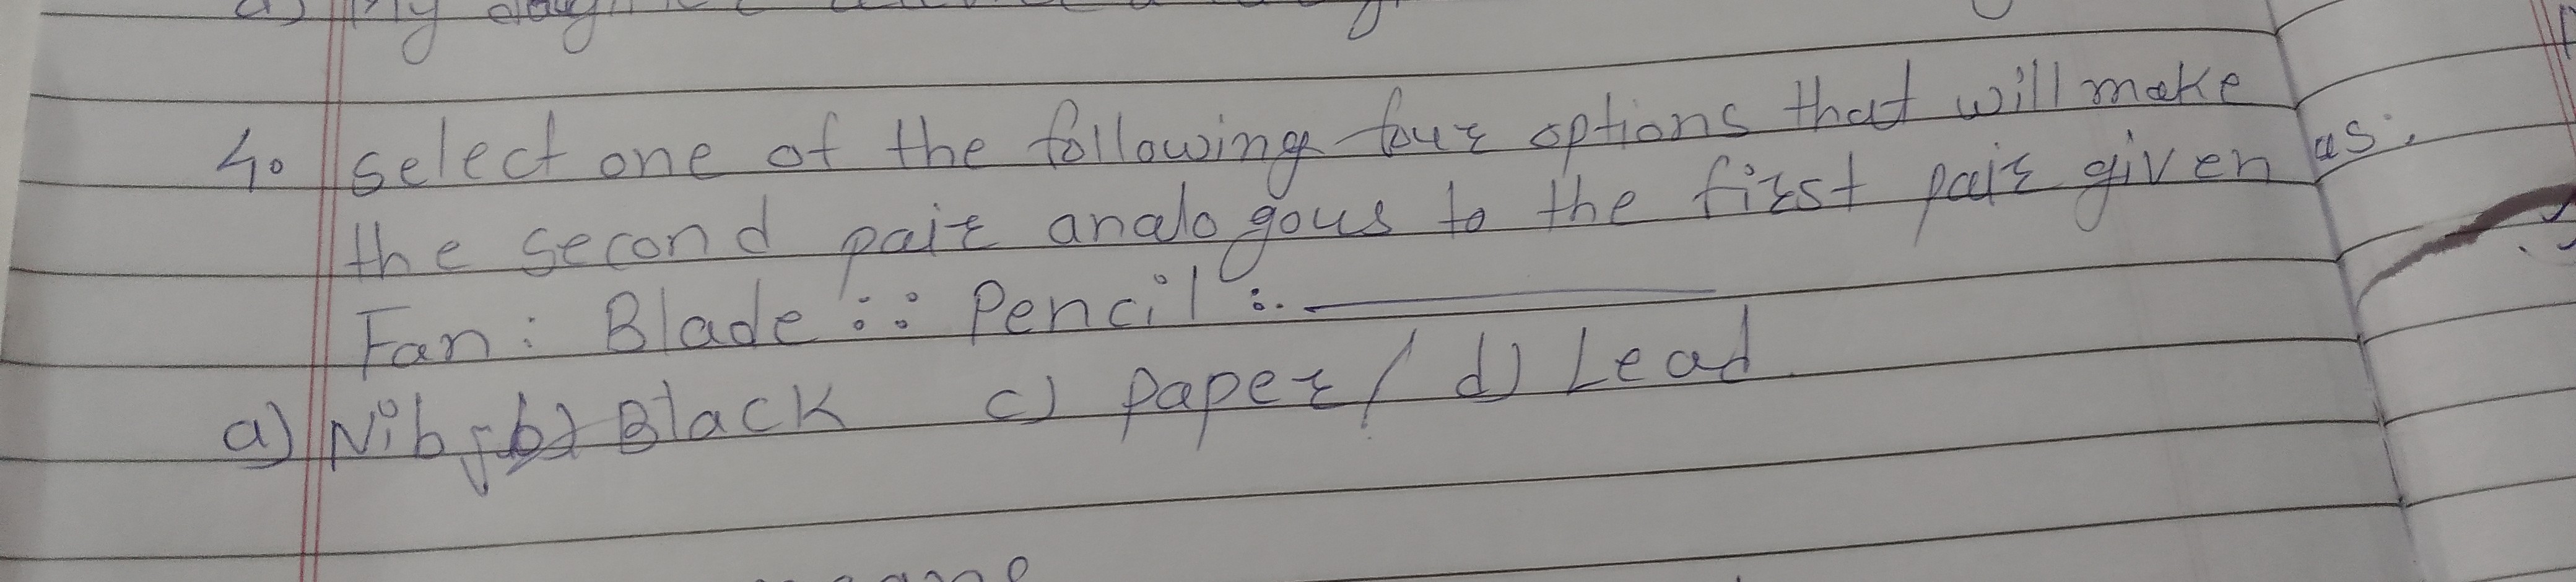 4. select one of the following four options that will make
the second pair analogous to the first pair given as:
Fan: Blade :: Pencil : ______
a) Nib, b) Black c) paper / d) Lead